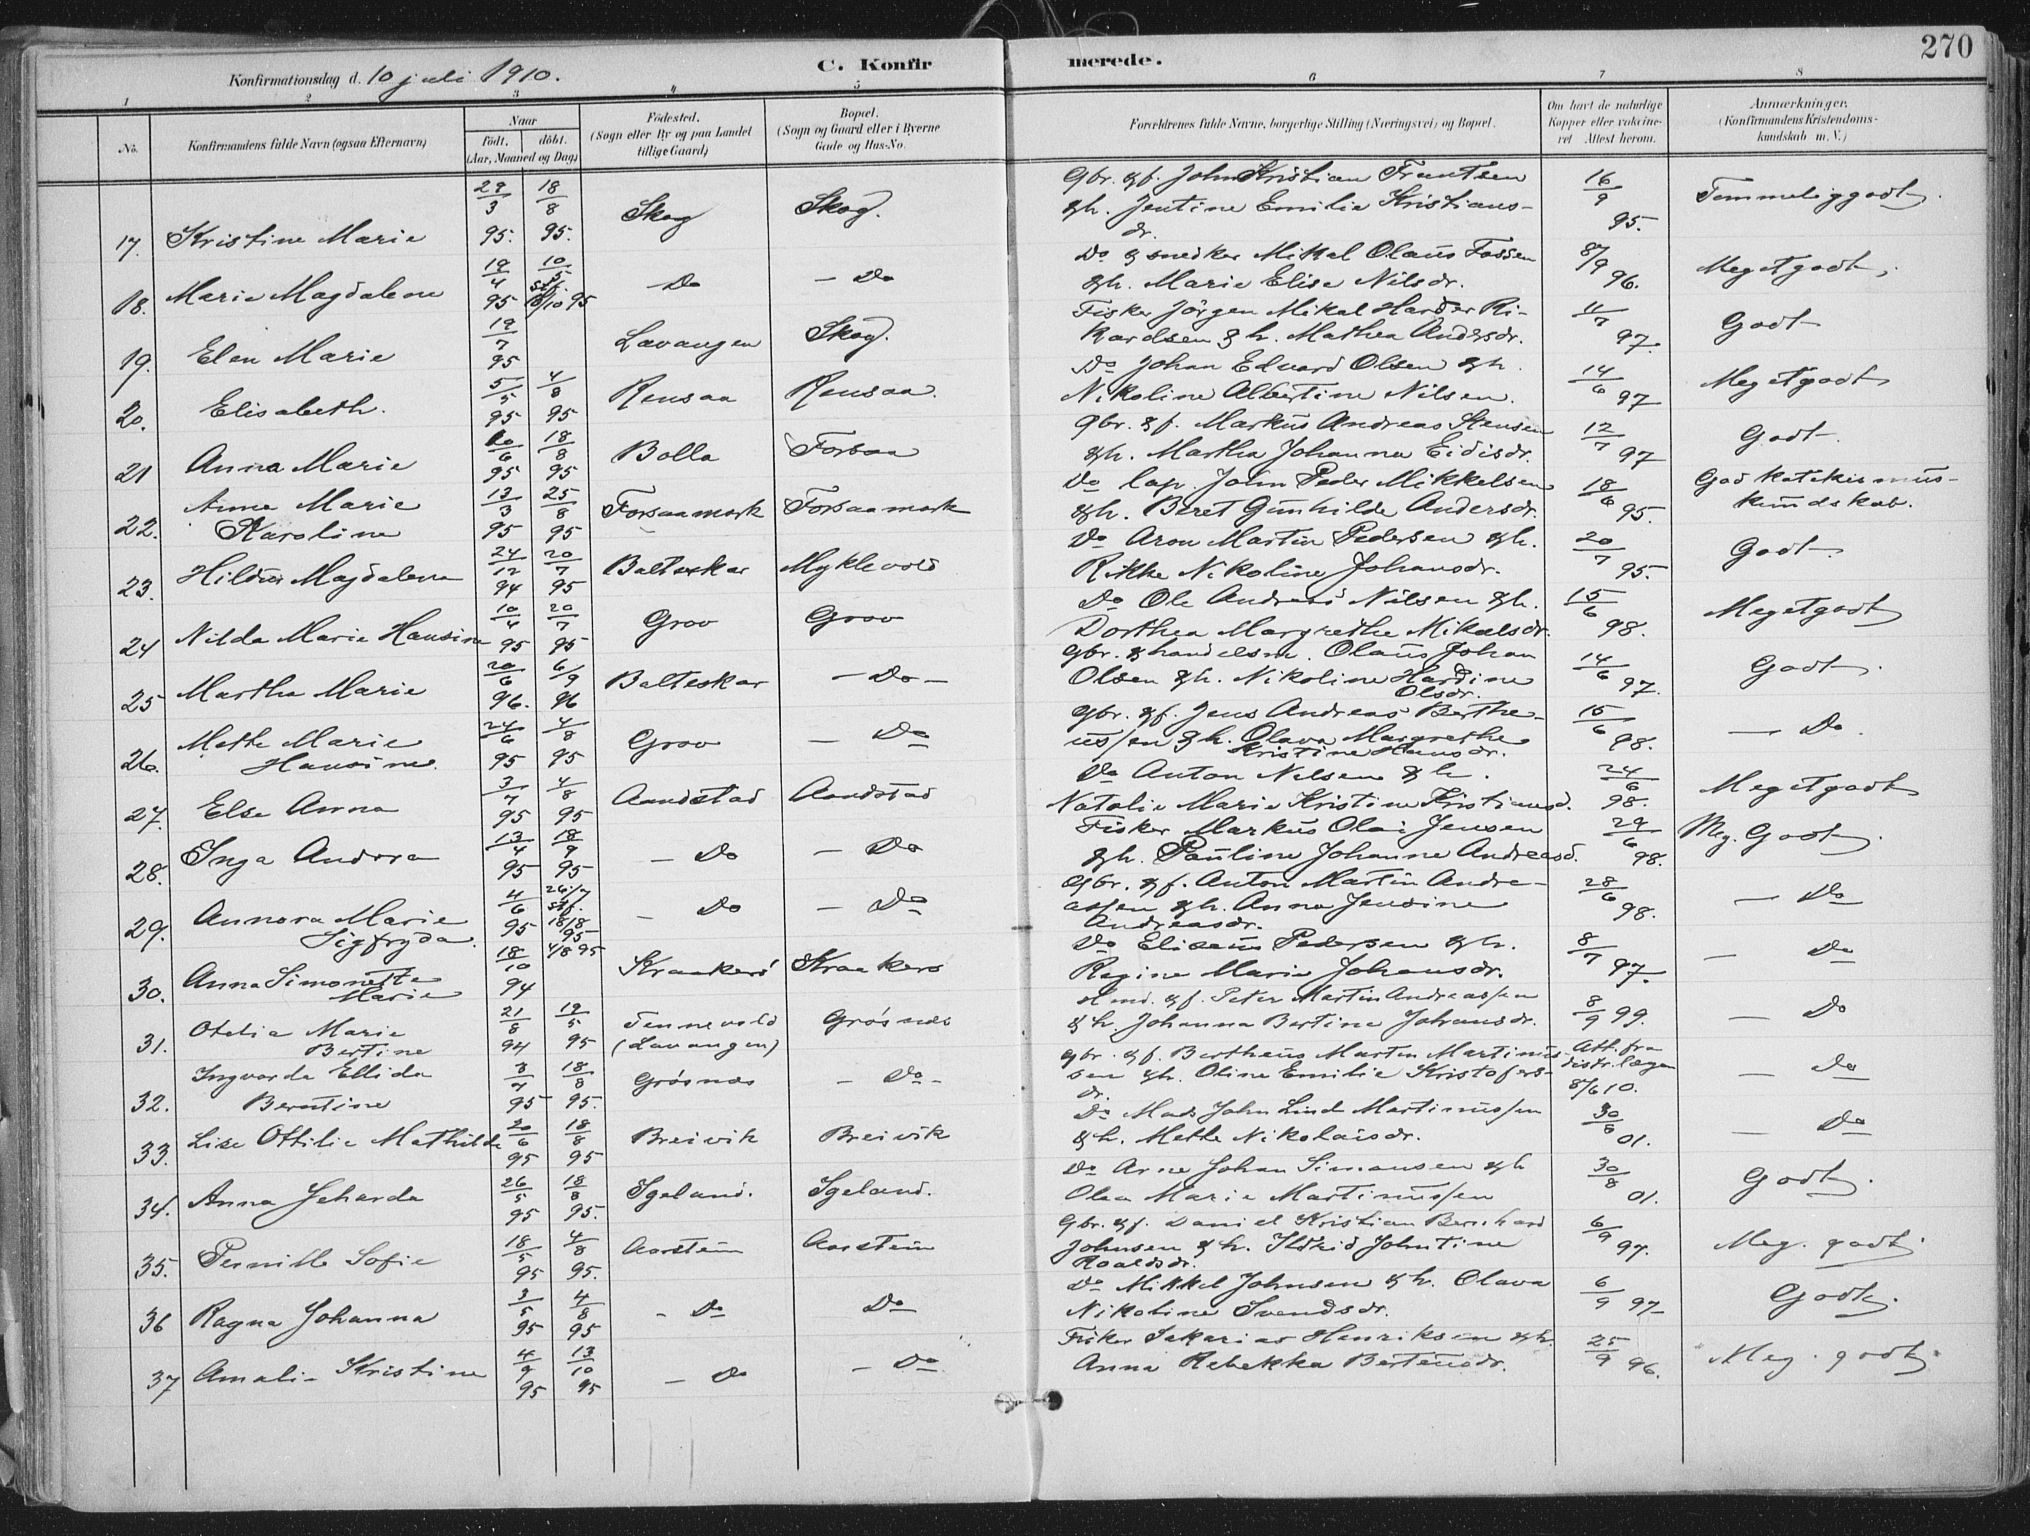 270
C. Konfirmerede.
Konfirmationsdag d. 10 juli 1910.
1 2 3 4 5 6 7 8
No. Konfirmandens fulde Navn (ogsaa Efternavn) Naar Födt. döbt. (Aar, Maaned og Dag) Födested. (Sogn eller By og paa Landet tillige Gaard) Bopæl. (Sogn og Gaard eller i Byerne Gade og Hus-No. Forældrenes fulde Navne, borgerlige Stilling (Næringsvei) og Bopæl. Om havt de naturlige Kopper eller vaccineret Attest herom. Anmærkninger. (Konfirmandens Kristendomskundskab m. V.)
17. Kristine Marie 29/3 95. 18/8 95. Skog Skog. Gbr. & f. John Kristian Frantsen & h. Jentine Emilie Kristiansdr. 16/9 95. Temmelig godt.
18. Marie Magdalene 19/4 95 10/5 stf. 13/10 95 Do — Do Do & snedker Mikal Olaus Fossen & h. Marie Elise Nilsdr. 8/9 96. Meget godt.
19. Elen Marie 19/7 95 Lavangen Skog. Fisker Jörgen Mikal Harder Rikardsen & h. Mathea Andersdr. 4/7 97. Godt
20. Elisabeth. 5/5 95 4/8 95 Rensaa Rensaa. Do Johan Edvard Olsen & h. Nikoline Albertine Nilsen. 14/6 97 Meget godt
21 Anna Marie 20/6 95 18/8 95 Bolla Forsaa Gbr. & f. Markus Andreas Stensen & h. Martha Johanna Eidisdr. 12/7 97 Godt.
22. Anna Marie Karoline 13/3 95 25/8 95 Forsaamark Forsaamark Do lap. John Peder Mikkelsen & h. Beret Gunhilde Andersdr. 18/6 95. God katekismuskundskab.
23. Hildur Magdalena 24/12 94 20/7 95 Balteskar Myklevold Do Aron Martin Pedersen & h. Rikke Nikoline Johansdr. 20/7 95. Godt
24 Nilda Marie Hansine 10/4 95 20/7 95 Grov Grov Do Ole Andreas Nilsen & h. Dorthea Margrethe Mikalsdr. 15/6 98. Meget godt
25 Martha Marie 20/6 96. 6/9 96 Balteskar — Do — Gbr. & handelsm. Olaus Johan Olsen & h. Nikoline Hardine Olsdr. 14/6 97. Godt.
26. Mette Marie Hansine. 24/6 95 4/8 95 Grov — Do Gbr. & f. Jens Andreas Bertheussen & h. Olava Margrethe Kristine Hansdr. 15/6 98. — Do.
27. Else Anna 3/7 95 4/8 95 Aandstad Aandstad Do Anton Nilsen & h. Natalie Marie Kristine Kristiansd. 24/6 98. Meget godt
28. Inga Andora 13/4 95 18/9 95 — Do — Do Fisker Markus Olai Jensen & h. Pauline Johanne Andreasd. 29/6 98. Meg. Godt.
29. Annora Marie Sigfryda. 4/6 95 26/7 stf. 18/8 95 — Do — Do Gbr. & f. Anton Martin Andreassen & h. Anna Jensine Andreasdr. 28/6 98. — Do
30. Anna Simonette Marie 18/10 94 4/8 95 Kraakerö Kraakerö Do Eliseus Pedersen & h. Ragine Marie Johansdr. 8/7 97. — Do
31. Otelia Marie Bertine 21/8 94 19/5 95 Tennevold (Lavangen) Grösnæs Hmd. & f. Peter Martin Andreassen & h. Johanna Bertine Johansdr. 8/9 99. — Do
32. Ingvarda Ellida Berntine 3/7 95 18/8 95. Grösnæs — Do — Gbr. & f. Bertheus Martin Martinussen & h. Oline Emilie Kristofersdr. Att. fra distr.lægen 8/6 10. — Do
33. Lise Ottilie Mathilde 20/6 95 18/8 95 Breivik Breivik Do Mads John Lind Martinussen & h. Mette Nikolaisdr. 30/8 01. — Do
34. Anna Jeharda 26/5 95 18/8 95. Igeland. Igeland. Do Arne Johan Simonsen & h Olea Marie Martinussen 30/8 01. Godt.
35. Pernille Sofie 18/5 95 4/8 95. Aarstein Aarstein Gbr. & f. Daniel Kristian Bernhard Johnsen & h. Ildrid Johntine Roaldsdr. 6/9 97. Meg. godt.
36 Ragna Johanna 3/5 95 4/8 95 — Do Do Do Mikkel Johnsen & h. Olava Nikoline Svendsdr. 6/9 97 Godt.
37 Amalie Kristine 4/9 95 13/10 95 — Do — Do Fisker Sakarias Henriksen & h. Anna Rebekka Berteusdr. 25/9 96. Meg. godt.